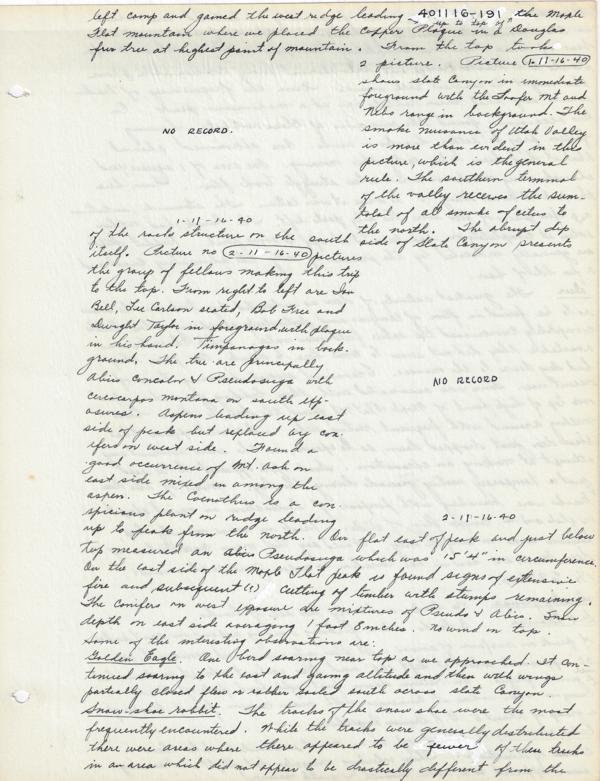 left camp and gained the west ridge leading 401116-191 the Maple
up to top of
Flat mountain where we placed the Copper Plaque in a Douglas
fir tree at highest point of mountain. From the top took
2 picture. Picture 1-11-16-40
shows slate Canyon in immediate
foreground with the Loafer Mt and
Nebo range in background. The
smoke nuisance of Utah Valley
is more than evident in this
picture, which is the general
rule. The southern terminal
of the valley receives the sum-
total of all smoke of cities to
the north. The abrupt dip
NO RECORD.
1-11-16-40
of the rocks structure on the south side of Slate Canyon presents
itself. Picture no 2-11-16-40 pictures
the group of fellows making this trip
to the top. From right to left are
Bell, Lee Carlson seated, Bob Free and
Dwight Taylor in foreground with plaque
in his hand. Timpanogas in back-
ground. The tree are principally
Abies concolor & Pseudosuga with
cercocarpos montana on south exp-
osures. Aspens leading up east
side of peak but replaced by con-
ifers on west side. Found a
good occurrence of Mt. ash on
east side mixed in among the
aspen. The Ceonothus is a con-
spicious plant on ridge leading
NO RECORD
2-11-16-40
up to peak from the north. On flat east of peak and just below
top measured an Pseudosuga which was 15' 4" in circumference.
On the east side of the Maple Flat peak is found signs of extensive
fire and subsequent (?) Cutting of timber with stumps remaining.
The conifers on west exposure are mixtures of Pseudo & Abies. Snow
depth on east side averaging 1 foot 8 inches. No wind on top.
Some of the interesting observations are:
Golden Eagle. One bird soaring near top as we approached. It con-
tinued soaring to the east and gaining altitude and then with wings
partially closed flew or rather sailed south across slate Canyon.
Snow-shoe rabbit. The tracks of the snow shoe were the most
frequently encountered. While the tracks were generally distributed
there were areas where there appeared to be fewer of these tracks
in an area which did not appear to be drastically different from the